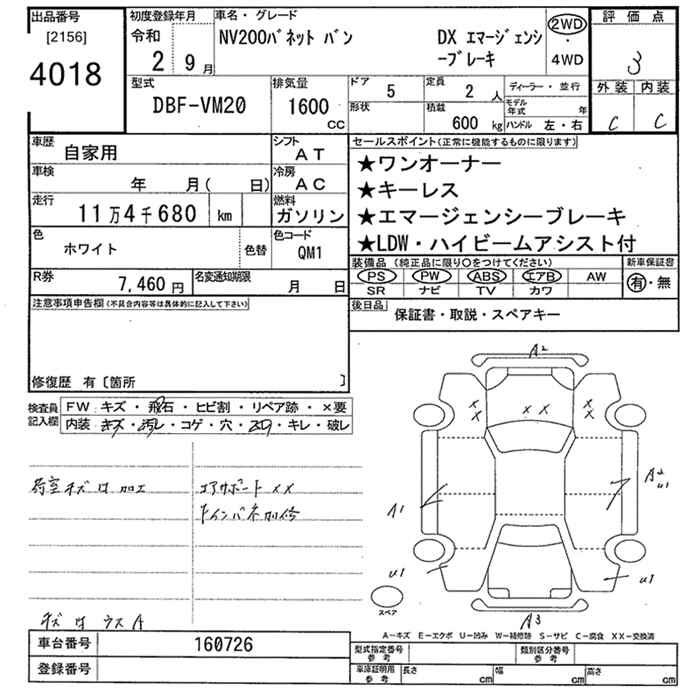 出品番号 初度登録年月 車名・グレード 評価点
[2156] 令和 NV200バネット バン DX エマージェンシ 2WD
4018 2 9月 ーブレーキ ・ 4WD 3
型式 排気量 ドア 5 定員 2人 ディーラー・並行 外装 内装
DBF-VM20 1600 CC 形状 積載 600kg モデル年式 年 C C
ハンドル 左・右
車歴 自家用 シフト AT セールスポイント(正常に機能するものに限ります)
車検 年 月( 日) 冷房 AC ★ワンオーナー
走行 11万4千680 km 燃料 ガソリン ★キーレス
★エマージェンシーブレーキ
色 ホワイト 色替 色コード QM1 ★LDW・ハイビームアシスト付
R券 7,460円 名変通知期限 月 日 装備品(純正品に限り○をつけてください) 新車保証書
PS PW ABS エアB AW 有・無
SR ナビ TV カワ
注意事項申告欄(不具合内容等は具体的に記入して下さい) 後日品 保証書・取説・スペアキー
修復歴 有〔箇所 〕
検査員記入欄 FW キズ・飛石・ヒビ割・リペア跡・×要
内装 キズ・汚レ・コゲ・穴・スレ・キレ・破レ
荷室キズ凹加工 コアサポートXX
キズ凹ウスA
A2
XX XX XX
A1 A2 U1
U1 U1
スペア
A3
A-キズ E-エクボ U-凹み W-補修跡 S-サビ C-腐食 XX-交換済
車台番号 160726 型式指定番号 参考 類別区分番号 参考
登録番号 車庫証明用 参考 長さ cm 幅 cm 高さ cm